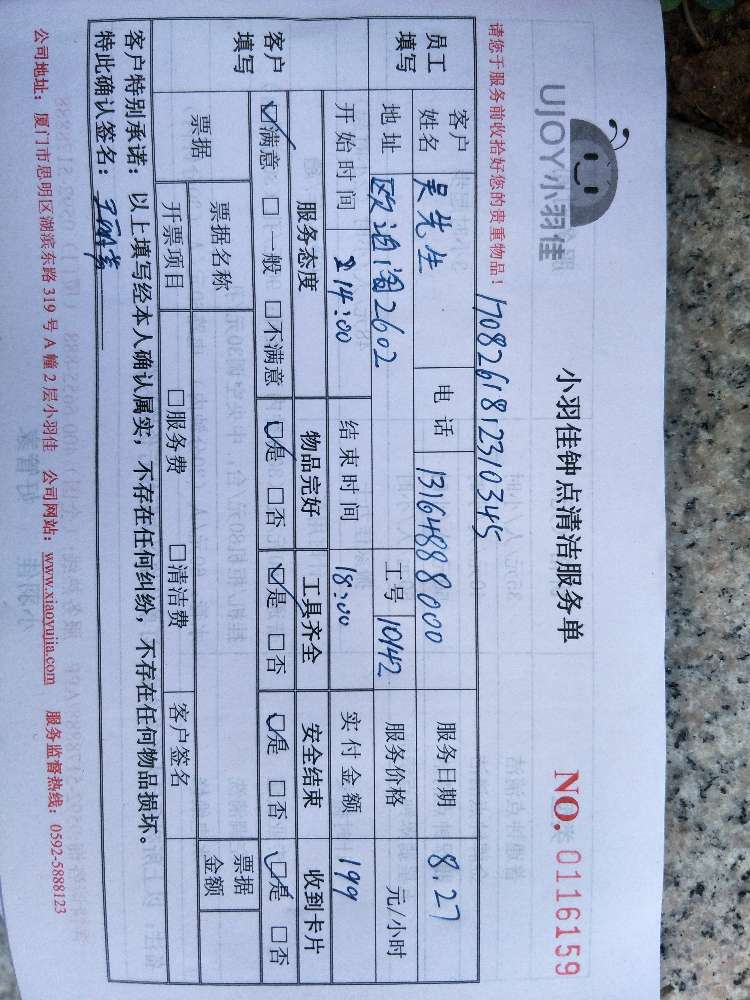 UJOY小羽佳
小羽佳钟点清洁服务单
NO. 0116159
请您于服务前收拾好您的贵重物品！
1708261812310345
员工填写
客户姓名 吴先生 电话 13164888000 服务日期 8.27
地址 欧迪湾2602 工号 10142 服务价格 元/小时
开始时间 14:00 结束时间 18:00 实付金额 199
客户填写
服务态度 物品完好 工具齐全 安全结束 收到卡片
☑满意 □一般 □不满意 ☑是 □否 ☑是 □否 ☑是 □否 ☑是 □否
票据 票据名称 票据金额
开票项目 □服务费 □清洁费 客户签名
客户特别承诺：以上填写经本人确认属实，不存在任何纠纷，不存在任何物品损坏。
特此确认签名：
公司地址：厦门市思明区湖滨东路319号A幢2层小羽佳 公司网站：www.xiaoyujia.com 服务监督热线：0592-5888123